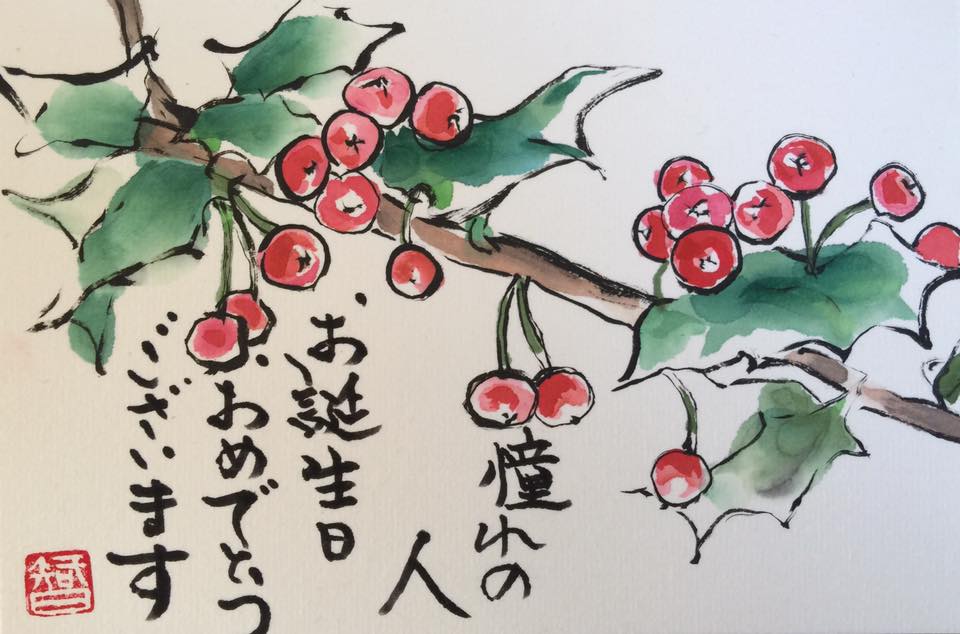 憧れの
人
お誕生日
おめでとう
ございます
智